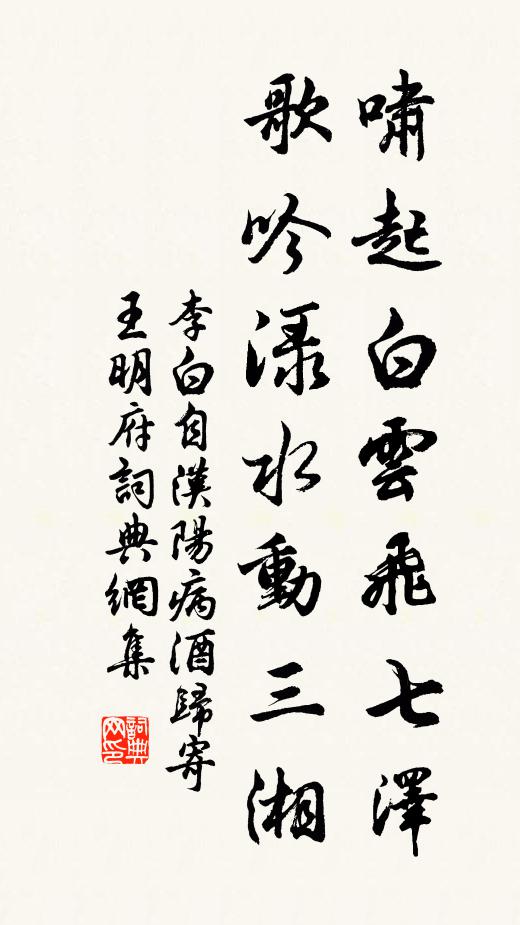 嘯起白雲飛七澤
歌吟渌水動三湘
李白自漢陽病酒歸寄
王明府詞典網集
詞典網印